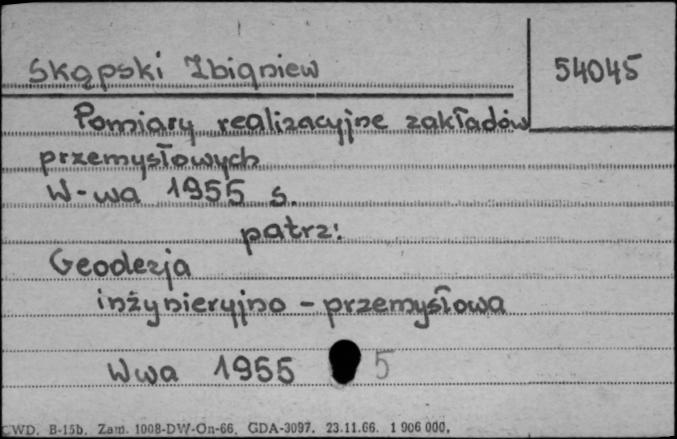 Skąpski Zbigniew
54045
Pomiary realizacyjne zakładów
przemysłowych
W-wa 1955 s.
patrz:
Geodezja
inżynieryjno - przemysłowa
Wwa 1955 5
CWD. B-15b. Zam. 1008-DW-On-66. GDA-3097. 23.11.66. 1 906 000.